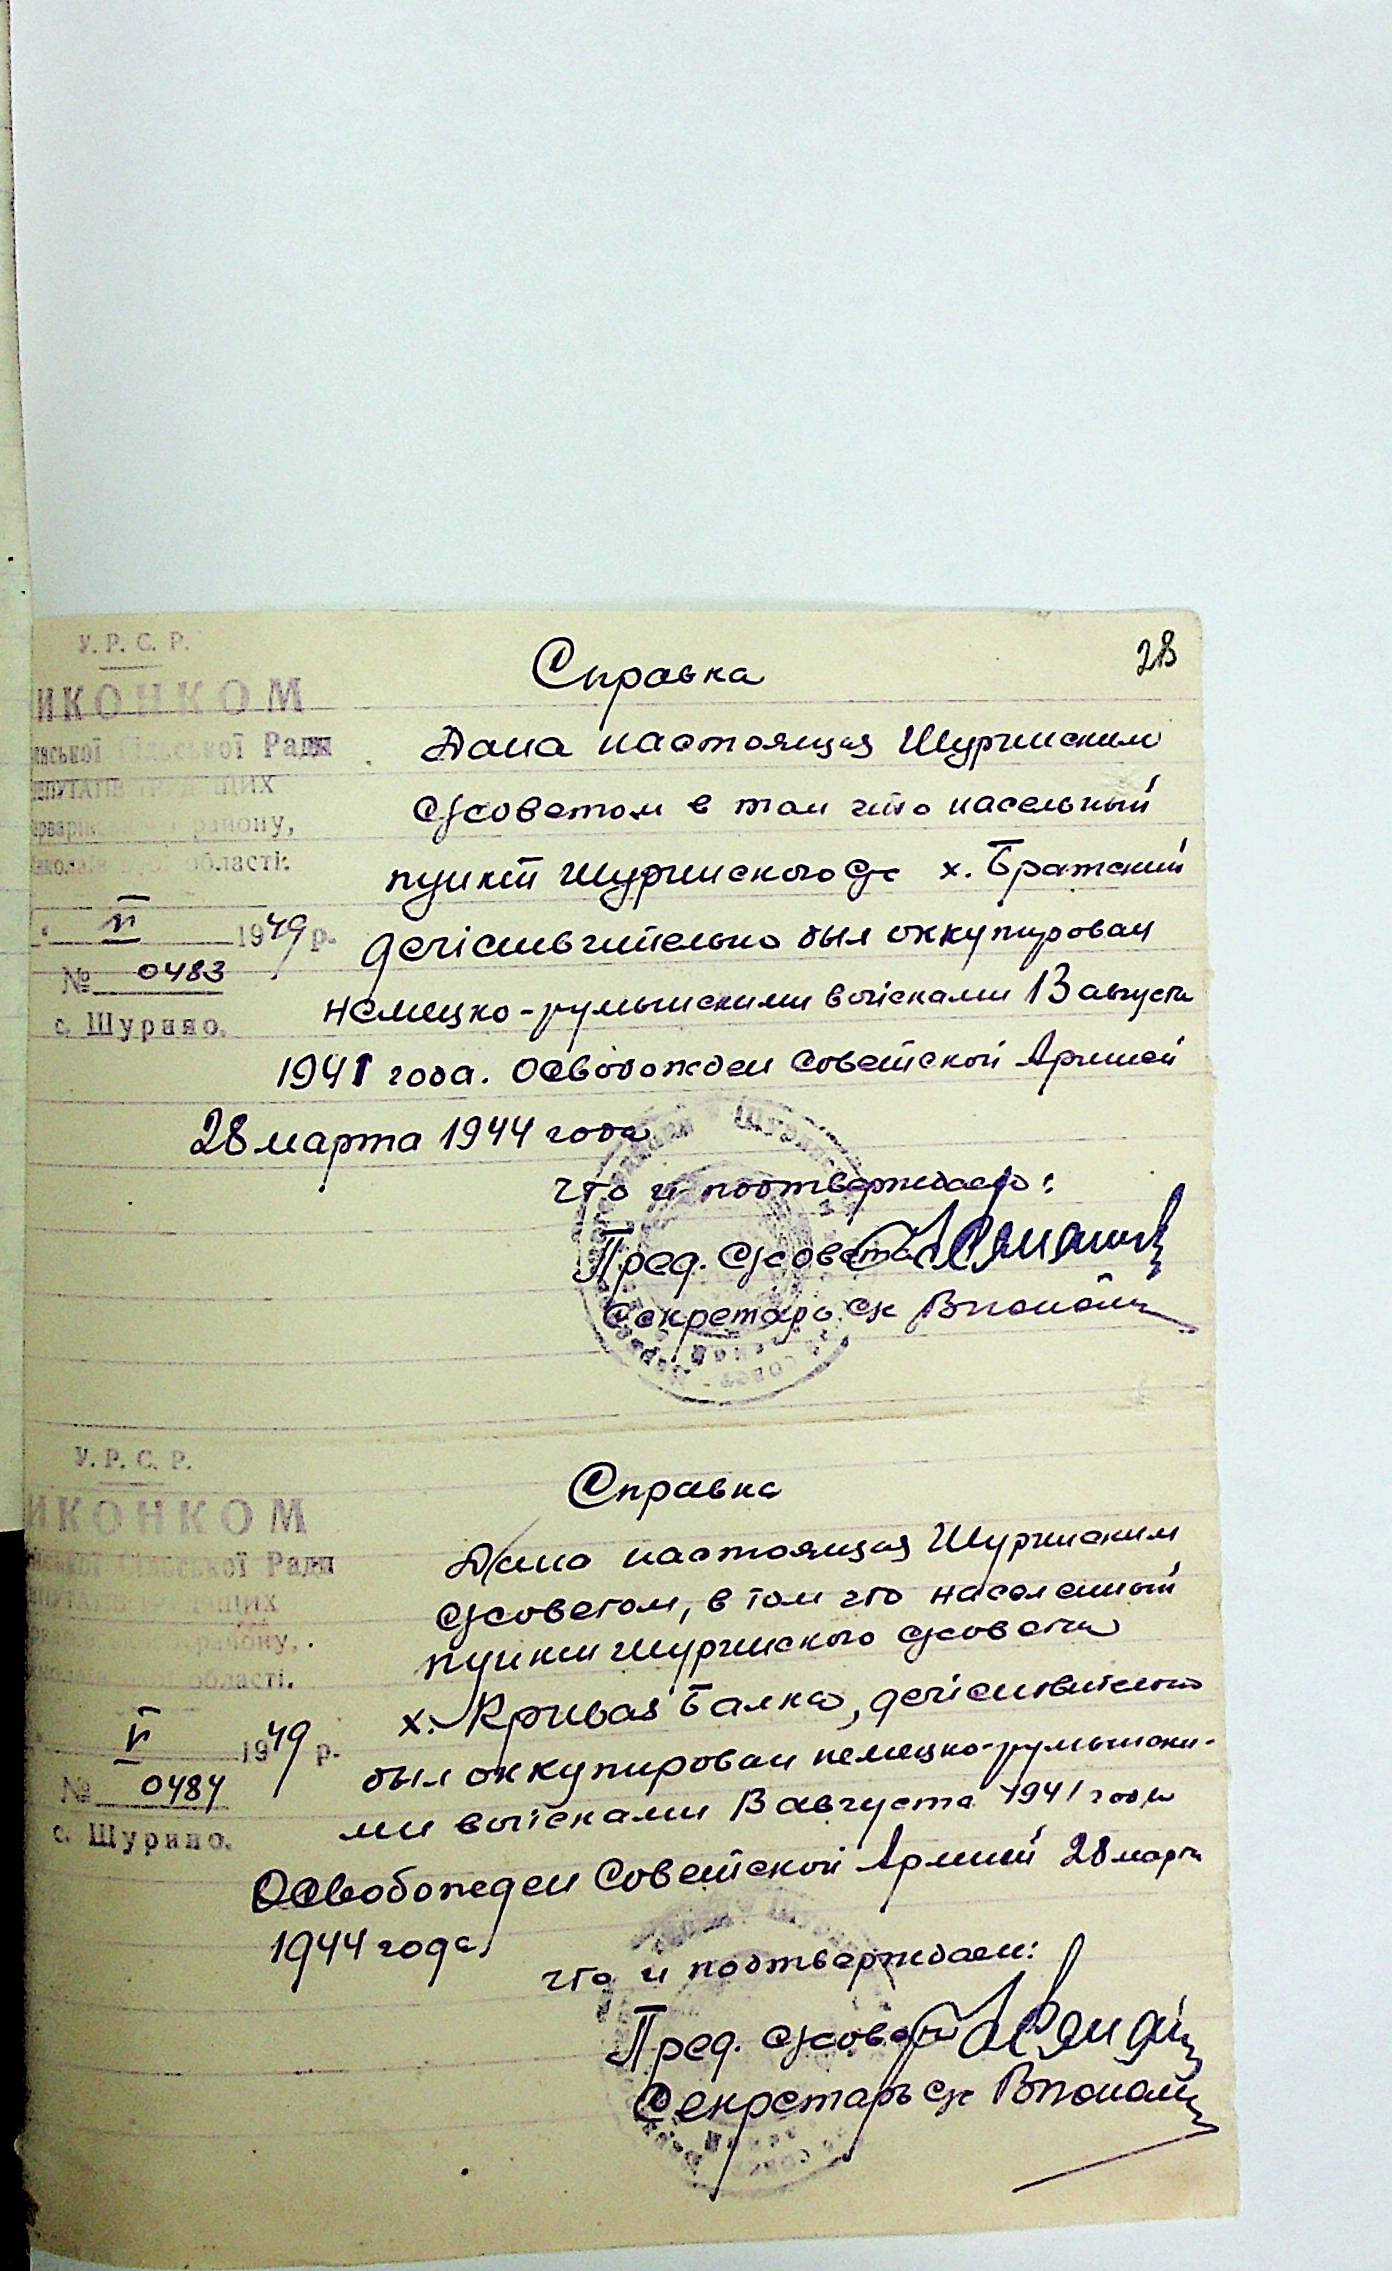 28
У. Р. С. Р.
ИКОНКОМ
Сільської Ради
району,
області.
VI 1949 р.
№ 0483
с. Шурино.
Справка
Дана настоящая Шуринским
с/советом в том что насельный
пункт Шуринского с/с х. Братский
действительно был оккупирован
немецко-румынскими войсками 13 августа
1941 года. Освобожден Советской Армией
28 марта 1944 года
что и подтверждаем:
Пред. с/совета
Секретарь с/с
У. Р. С. Р.
ИКОНКОМ
Сільської Ради
району,
області.
VI 1949 р.
№ 0484
с. Шурино.
Справка
Дана настоящая Шуринским
с/советом, в том что населенный
пункт Шуринского с/совета
х. Кривая Балка, действительно
был оккупирован немецко-румынски-
ми войсками 13 августа 1941 года
Освобожден Советской Армией 28 марта
1944 года.
что и подтверждаем:
Пред. с/совета
Секретарь с/с